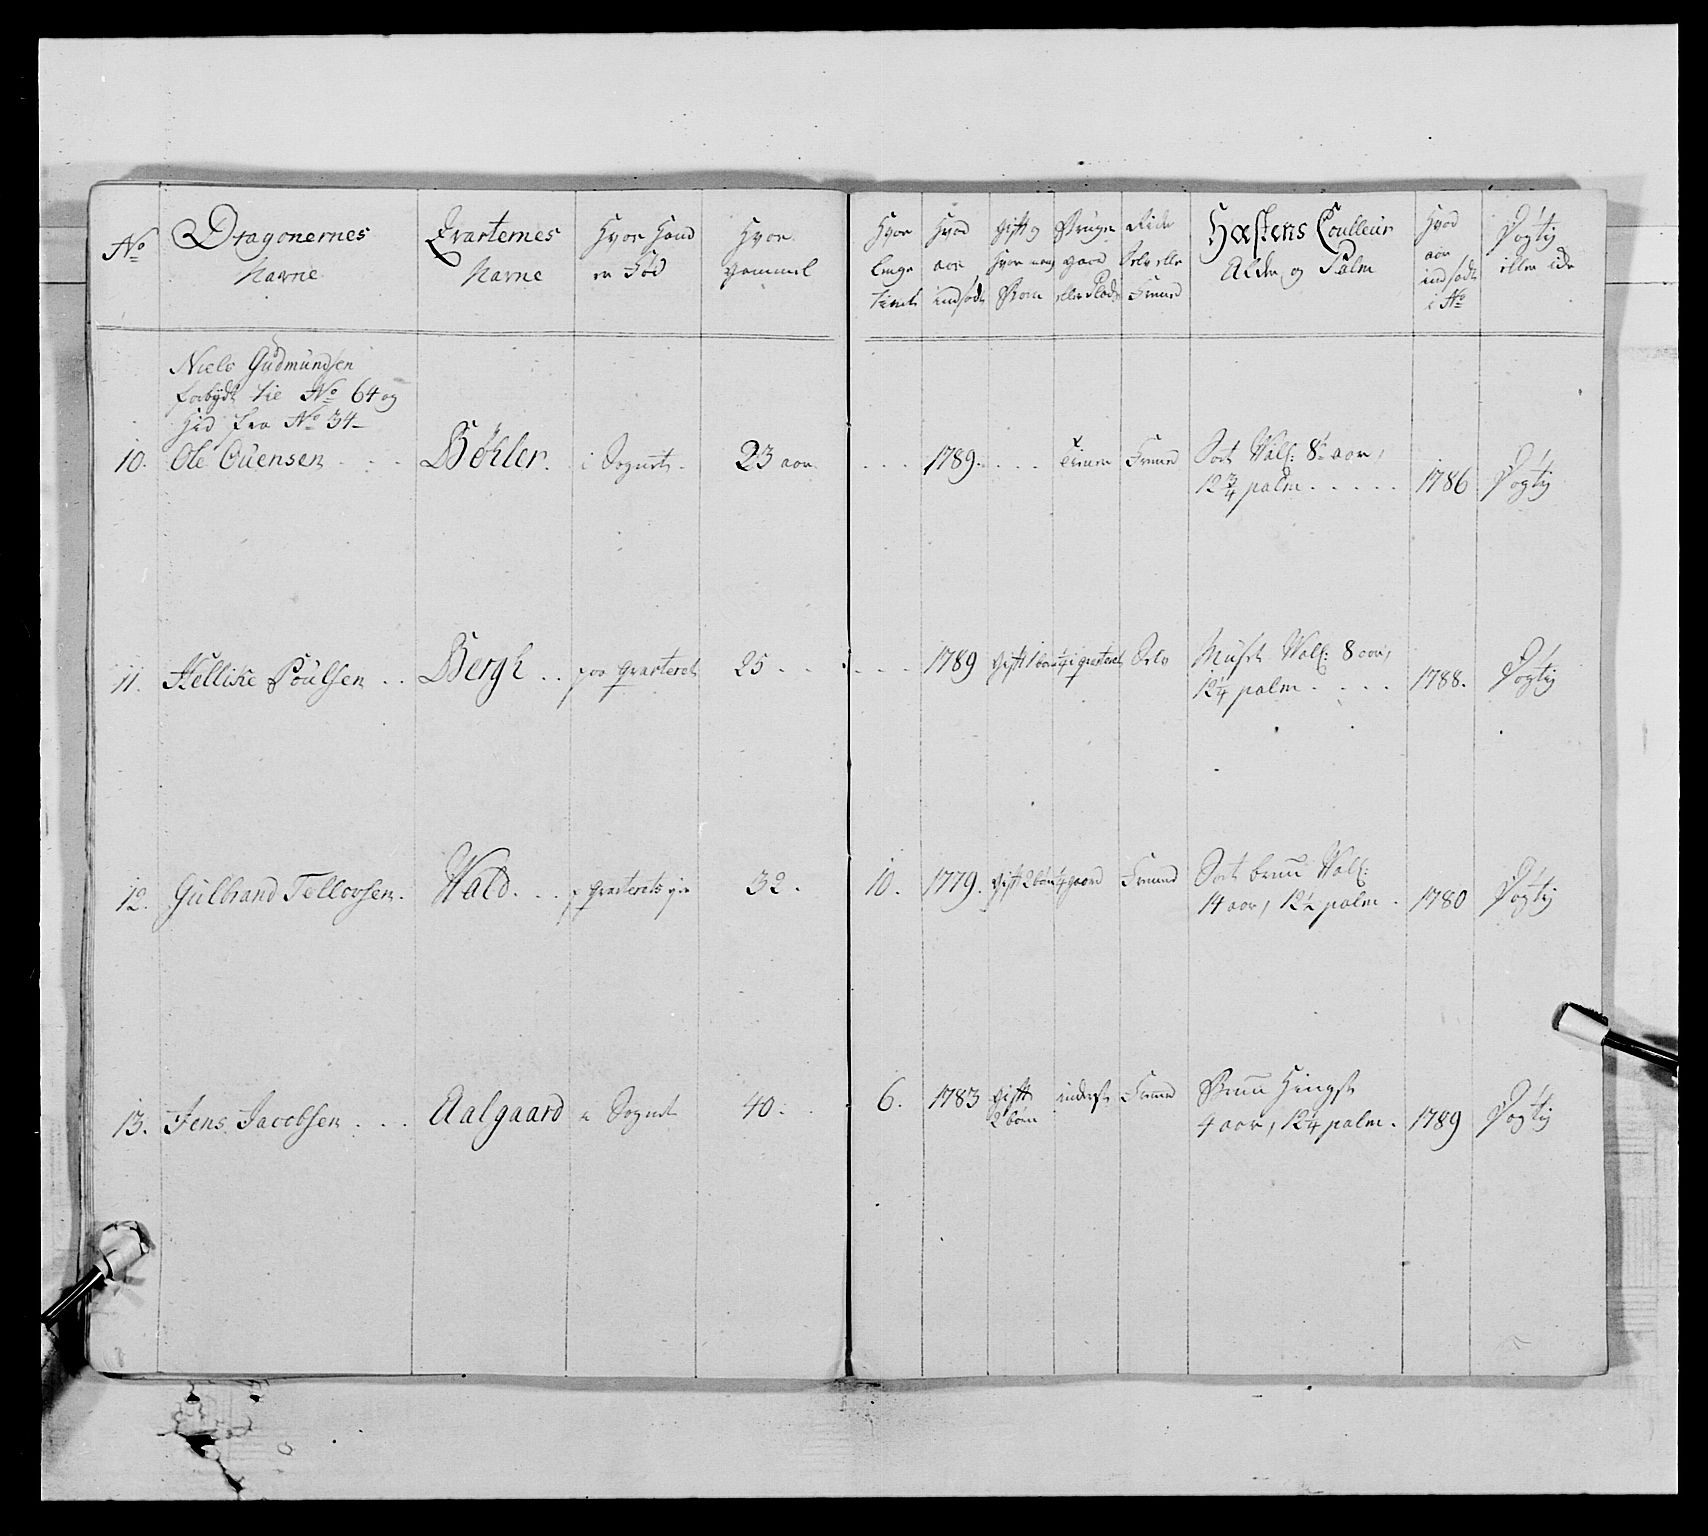 No
Dragonernes
Navne
Qvarternes
Navne
Hvor Hand
er Fød
Hvor
gammel
Hvor
lenge
tient
Hvad
aar
indsødt
gift og
hvor mang
Børn
Bruger
gaard
eller Plads
Ride
Selv elle
Fremd
Hæstens Coulleur
Alder og Palm
Hvad
aar
indsødt
i No
Døgtig
eller ide
Niels Gudmundsen
forbydt til No 64 og
hid fra No 34
10. Ole Ouensen . . . Bøhler. i Sognet. 23 aar. . . . 1789. . . . tiener Fremd Sort Vall: 8t aar,
12 3/4 palm . . . . . 1786 Døgtig
11. Hellike Poulsen . . Bergh . . paa Qvarteret 25 . . . . . 1789 gift 1 barn 1/4 i qvarteret Selv Muset Vall: 8 aar,
12 1/4 palm . . . . 1788. Døgtig
12. Gulbrand Tellovsen. Wald. . . p Qvarterets 32. 10. 1779. gift 2 børn 1/4 gaard Fremd Sort brun Vall:
14 aar, 12 1/2 palm. 1780 Døgtig
13. Jens Jacobsen . . . Aalgaard i Sognet 40. 6. 1783 gift
2 børn inderst Fremd Brun Hingst
4 aar, 12 1/4 palm. 1789 Døgtig